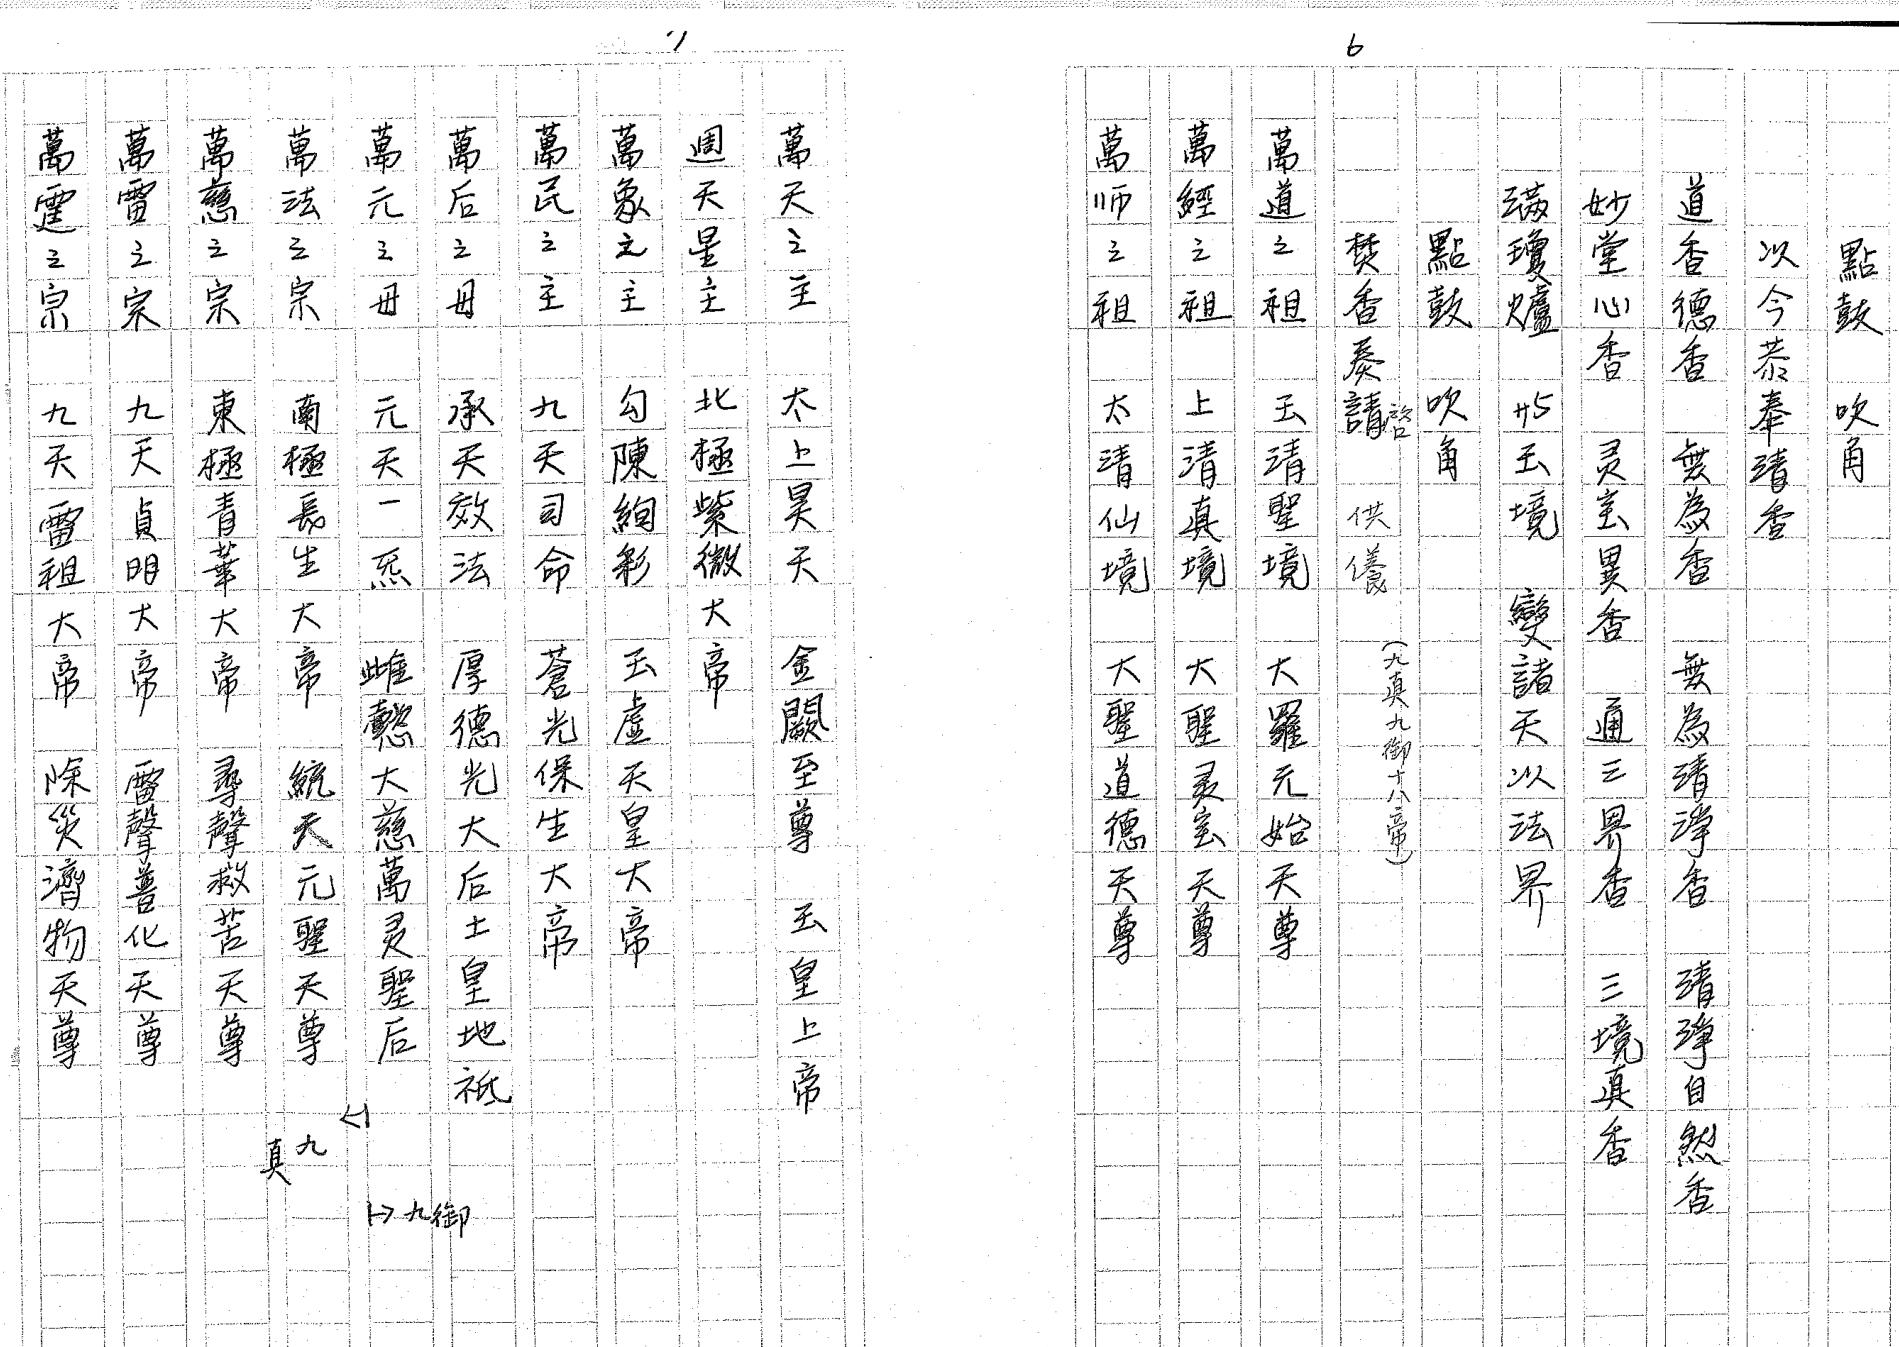 6
點鼓　吹角
以今恭奉清香
道香德香　無為香　無為清淨香　清淨自然香
妙堂心香　灵宝異香　通三界香　三境真香
滿瓊爐　玉境　變諸天以法界
點鼓　吹角
焚香奏請啓　供養　(九真九御十八帝)
萬道之祖　玉清聖境　大羅元始天尊
萬經之祖　上清真境　大聖灵宝天尊
萬师之祖　太清仙境　大聖道德天尊
7
萬天之主　太上昊天　金闕至尊　玉皇上帝
週天星主　北極紫微大帝
萬象之主　勾陳絢彩　玉虛天皇大帝
萬民之主　九天司命　蒼光保生大帝
萬后之母　承天效法　厚德光大后土皇地祗
萬元之母　元天一炁　雌懿大慈萬灵聖后
萬法之宗　南極長生大帝　統天元聖天尊
萬慈之宗　東極青華大帝　尋聲救苦天尊
萬雷之宗　九天貞明大帝　雷聲普化天尊
萬霆之宗　九天雷祖大帝　除災濟物天尊
九真
九御